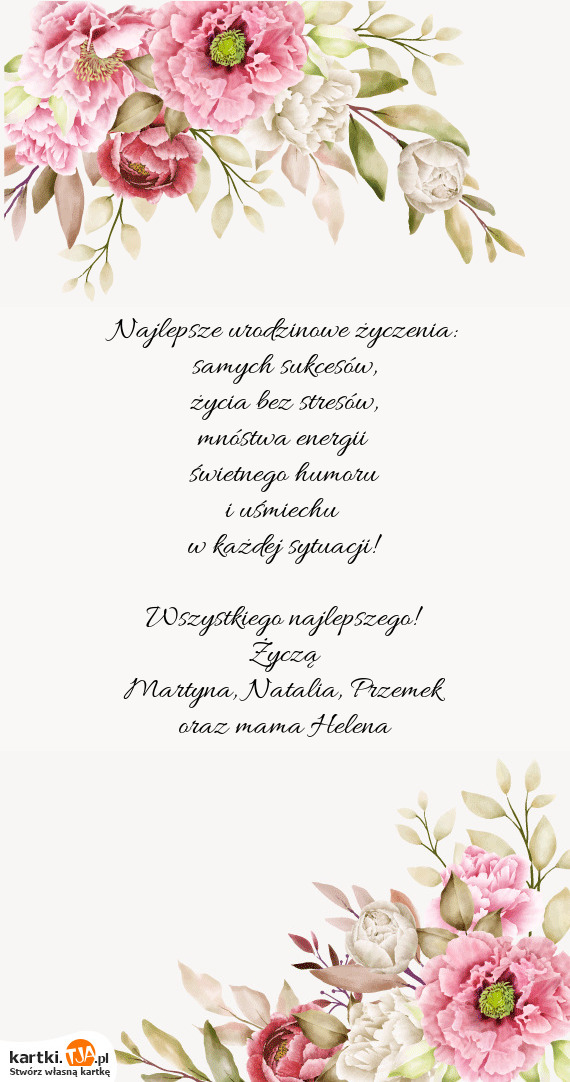 Najlepsze urodzinowe życzenia:
samych sukcesów,
życia bez stresów,
mnóstwa energii
świetnego humoru
i uśmiechu
w każdej sytuacji!
Wszystkiego najlepszego!
Życzą
Martyna, Natalia, Przemek
oraz mama Helena
kartki.TJA.pl
Stwórz własną kartkę